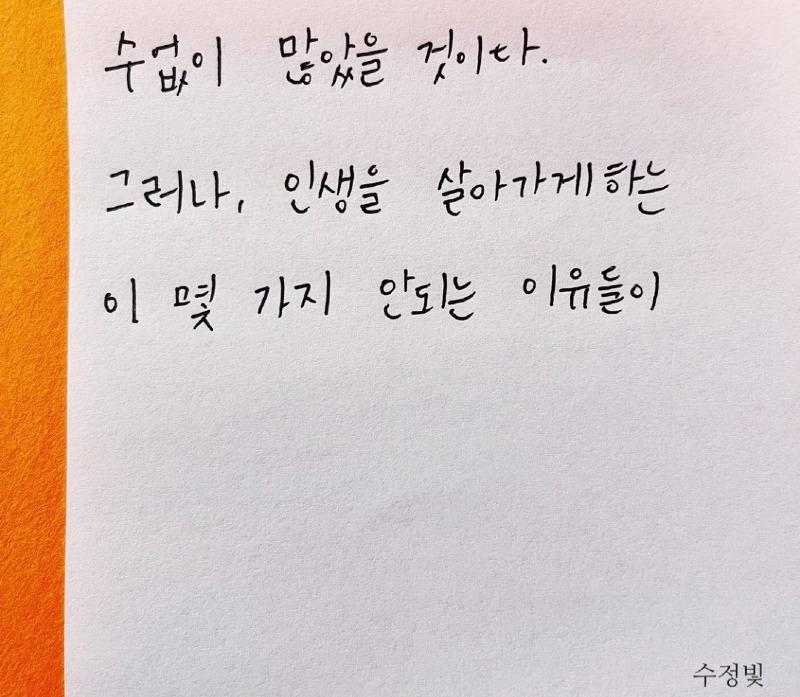 수없이 많았을 것이다.
그러나, 인생을 살아가게 하는
이 몇 가지 안되는 이유들이
수정빛